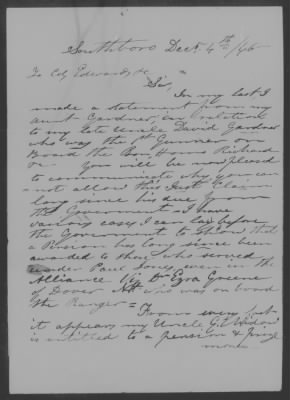 Southboro Dect. 4th /46
To Col Edwards &c
Sir,
In my last I
made a statement from my
aunt Gardner, in relation
to my late Uncle David Gardner
who was the 1st Gunner on
Board the Bon Homme Richard
You will be now pleased
to communicate why you can
not allow this Just Claim
long since his due from
the Government as I have
various cases I can lay before
the Government to show that
a Pension has long since been
awarded to those who served
under Paul Jones even in the
Alliance Viz Dr Ezra Greene
of Dover NH who was on board
the Ranger =
From every fact
it appears my Uncle G's Widow
is entitled to a pension & prize
money